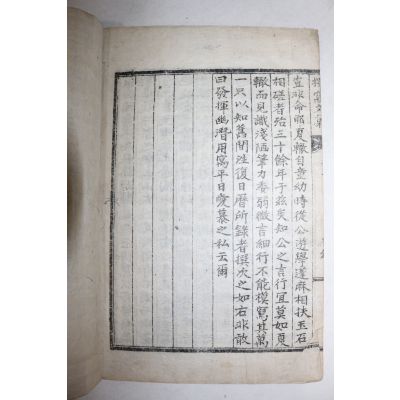 豈非命耶夏轍自童幼時從公遊學蓬麻相扶玉石
相磋者殆三十餘年于玆矣知公之言行宜莫如夏
轍而見識淺陋筆力卷弱微言細行不能模寫其萬
一只以知舊間往復日曆所錄者撰次之如右非敢
曰發揮幽潛用寓平日愛慕之私云爾